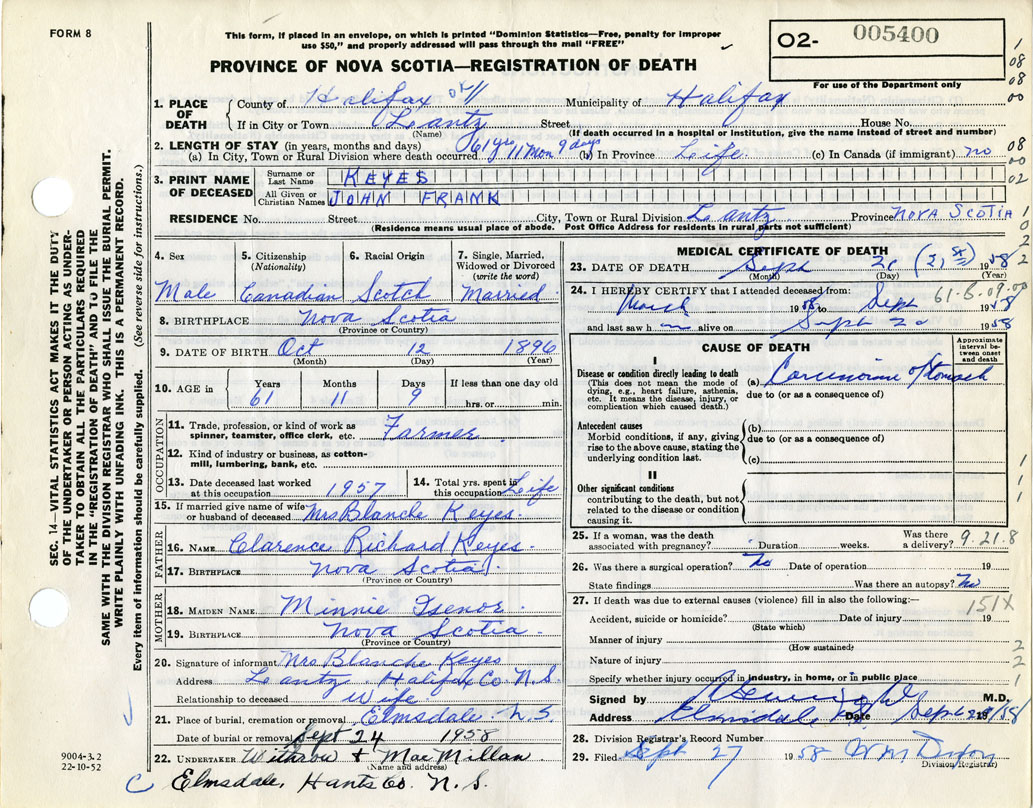 FORM 8
This form, if placed in an envelope, on which is printed "Dominion Statistics—Free, penalty for improper
use $50," and properly addressed will pass through the mail "FREE"
PROVINCE OF NOVA SCOTIA—REGISTRATION OF DEATH
O2- 005400
For use of the Department only
1. PLACE OF DEATH County of Halifax Municipality of Halifax
If in City or Town Lantz Street House No.
(Name) (If death occurred in a hospital or institution, give the name instead of street and number)
2. LENGTH OF STAY (in years, months and days)
(a) In City, Town or Rural Division where death occurred 61 yrs 11 Mon 9 days (b) In Province Life (c) In Canada (if immigrant) no
3. PRINT NAME OF DECEASED Surname or Last Name KEYES
All Given or Christian Names JOHN FRANK
RESIDENCE No. Street City, Town or Rural Division Lantz Province NOVA SCOTIA
(Residence means usual place of abode. Post Office Address for residents in rural parts not sufficient)
4. Sex Male
5. Citizenship (Nationality) Canadian
6. Racial Origin Scotch
7. Single, Married, Widowed or Divorced (write the word) Married
8. BIRTHPLACE Nova Scotia
(Province or Country)
9. DATE OF BIRTH Oct 12 1896
(Month) (Day) (Year)
10. AGE in Years 61 Months 11 Days 9 If less than one day old hrs. or min.
OCCUPATION
11. Trade, profession, or kind of work as spinner, teamster, office clerk, etc. Farmer
12. Kind of industry or business, as cotton-mill, lumbering, bank, etc.
13. Date deceased last worked at this occupation 1957
14. Total yrs. spent in this occupation Life
15. If married give name of wife or husband of deceased Mrs Blanche Keyes
FATHER
16. NAME Clarence Richard Keyes
17. BIRTHPLACE Nova Scotia
(Province or Country)
MOTHER
18. MAIDEN NAME Minnie Isenor
19. BIRTHPLACE Nova Scotia
(Province or Country)
20. Signature of informant Mrs Blanche Keyes
Address Lantz Halifax Co. N.S.
Relationship to deceased Wife
21. Place of burial, cremation or removal Elmsdale N.S
Date of burial or removal Sept 24 1958
22. UNDERTAKER Withrow & MacMillan
(Name and address)
Elmsdale, Hants Co. N.S.
MEDICAL CERTIFICATE OF DEATH
23. DATE OF DEATH Sept 20 1958
(Month) (Day) (Year)
24. I HEREBY CERTIFY that I attended deceased from:
March 1958 to Sept 1958
61-B.09.00
and last saw h im alive on Sept 20 1958
CAUSE OF DEATH
Approximate interval between onset and death
I
Disease or condition directly leading to death
(This does not mean the mode of dying, e.g., heart failure, asthenia, etc. It means the disease, injury, or complication which caused death.)
(a) Carcinoma of stomach
due to (or as a consequence of)
Antecedent causes
Morbid conditions, if any, giving rise to the above cause, stating the underlying condition last.
(b)
due to (or as a consequence of)
(c)
II
Other significant conditions
contributing to the death, but not related to the disease or condition causing it.
25. If a woman, was the death associated with pregnancy? Duration weeks. Was there a delivery? 9.21.8
26. Was there a surgical operation? No Date of operation 19
State findings Was there an autopsy? No
27. If death was due to external causes (violence) fill in also the following:—
151X
Accident, suicide or homicide? Date of injury 19
(State which)
Manner of injury
(How sustained)
Nature of injury
Specify whether injury occurred in industry, in home, or in public place
Signed by M.D.
Address Elmsdale Date Sept 19
28. Division Registrar's Record Number
29. Filed Sept 27 1958
Division Registrar)
SEC. 14—VITAL STATISTICS ACT MAKES IT THE DUTY
OF THE UNDERTAKER OR PERSON ACTING AS UNDER-
TAKER TO OBTAIN ALL THE PARTICULARS REQUIRED
IN THE "REGISTRATION OF DEATH" AND TO FILE THE
SAME WITH THE DIVISION REGISTRAR WHO SHALL ISSUE THE BURIAL PERMIT.
WRITE PLAINLY WITH UNFADING INK. THIS IS A PERMANENT RECORD.
Every item of information should be carefully supplied. (See reverse side for instructions.)
9004-3.2
22-10-52